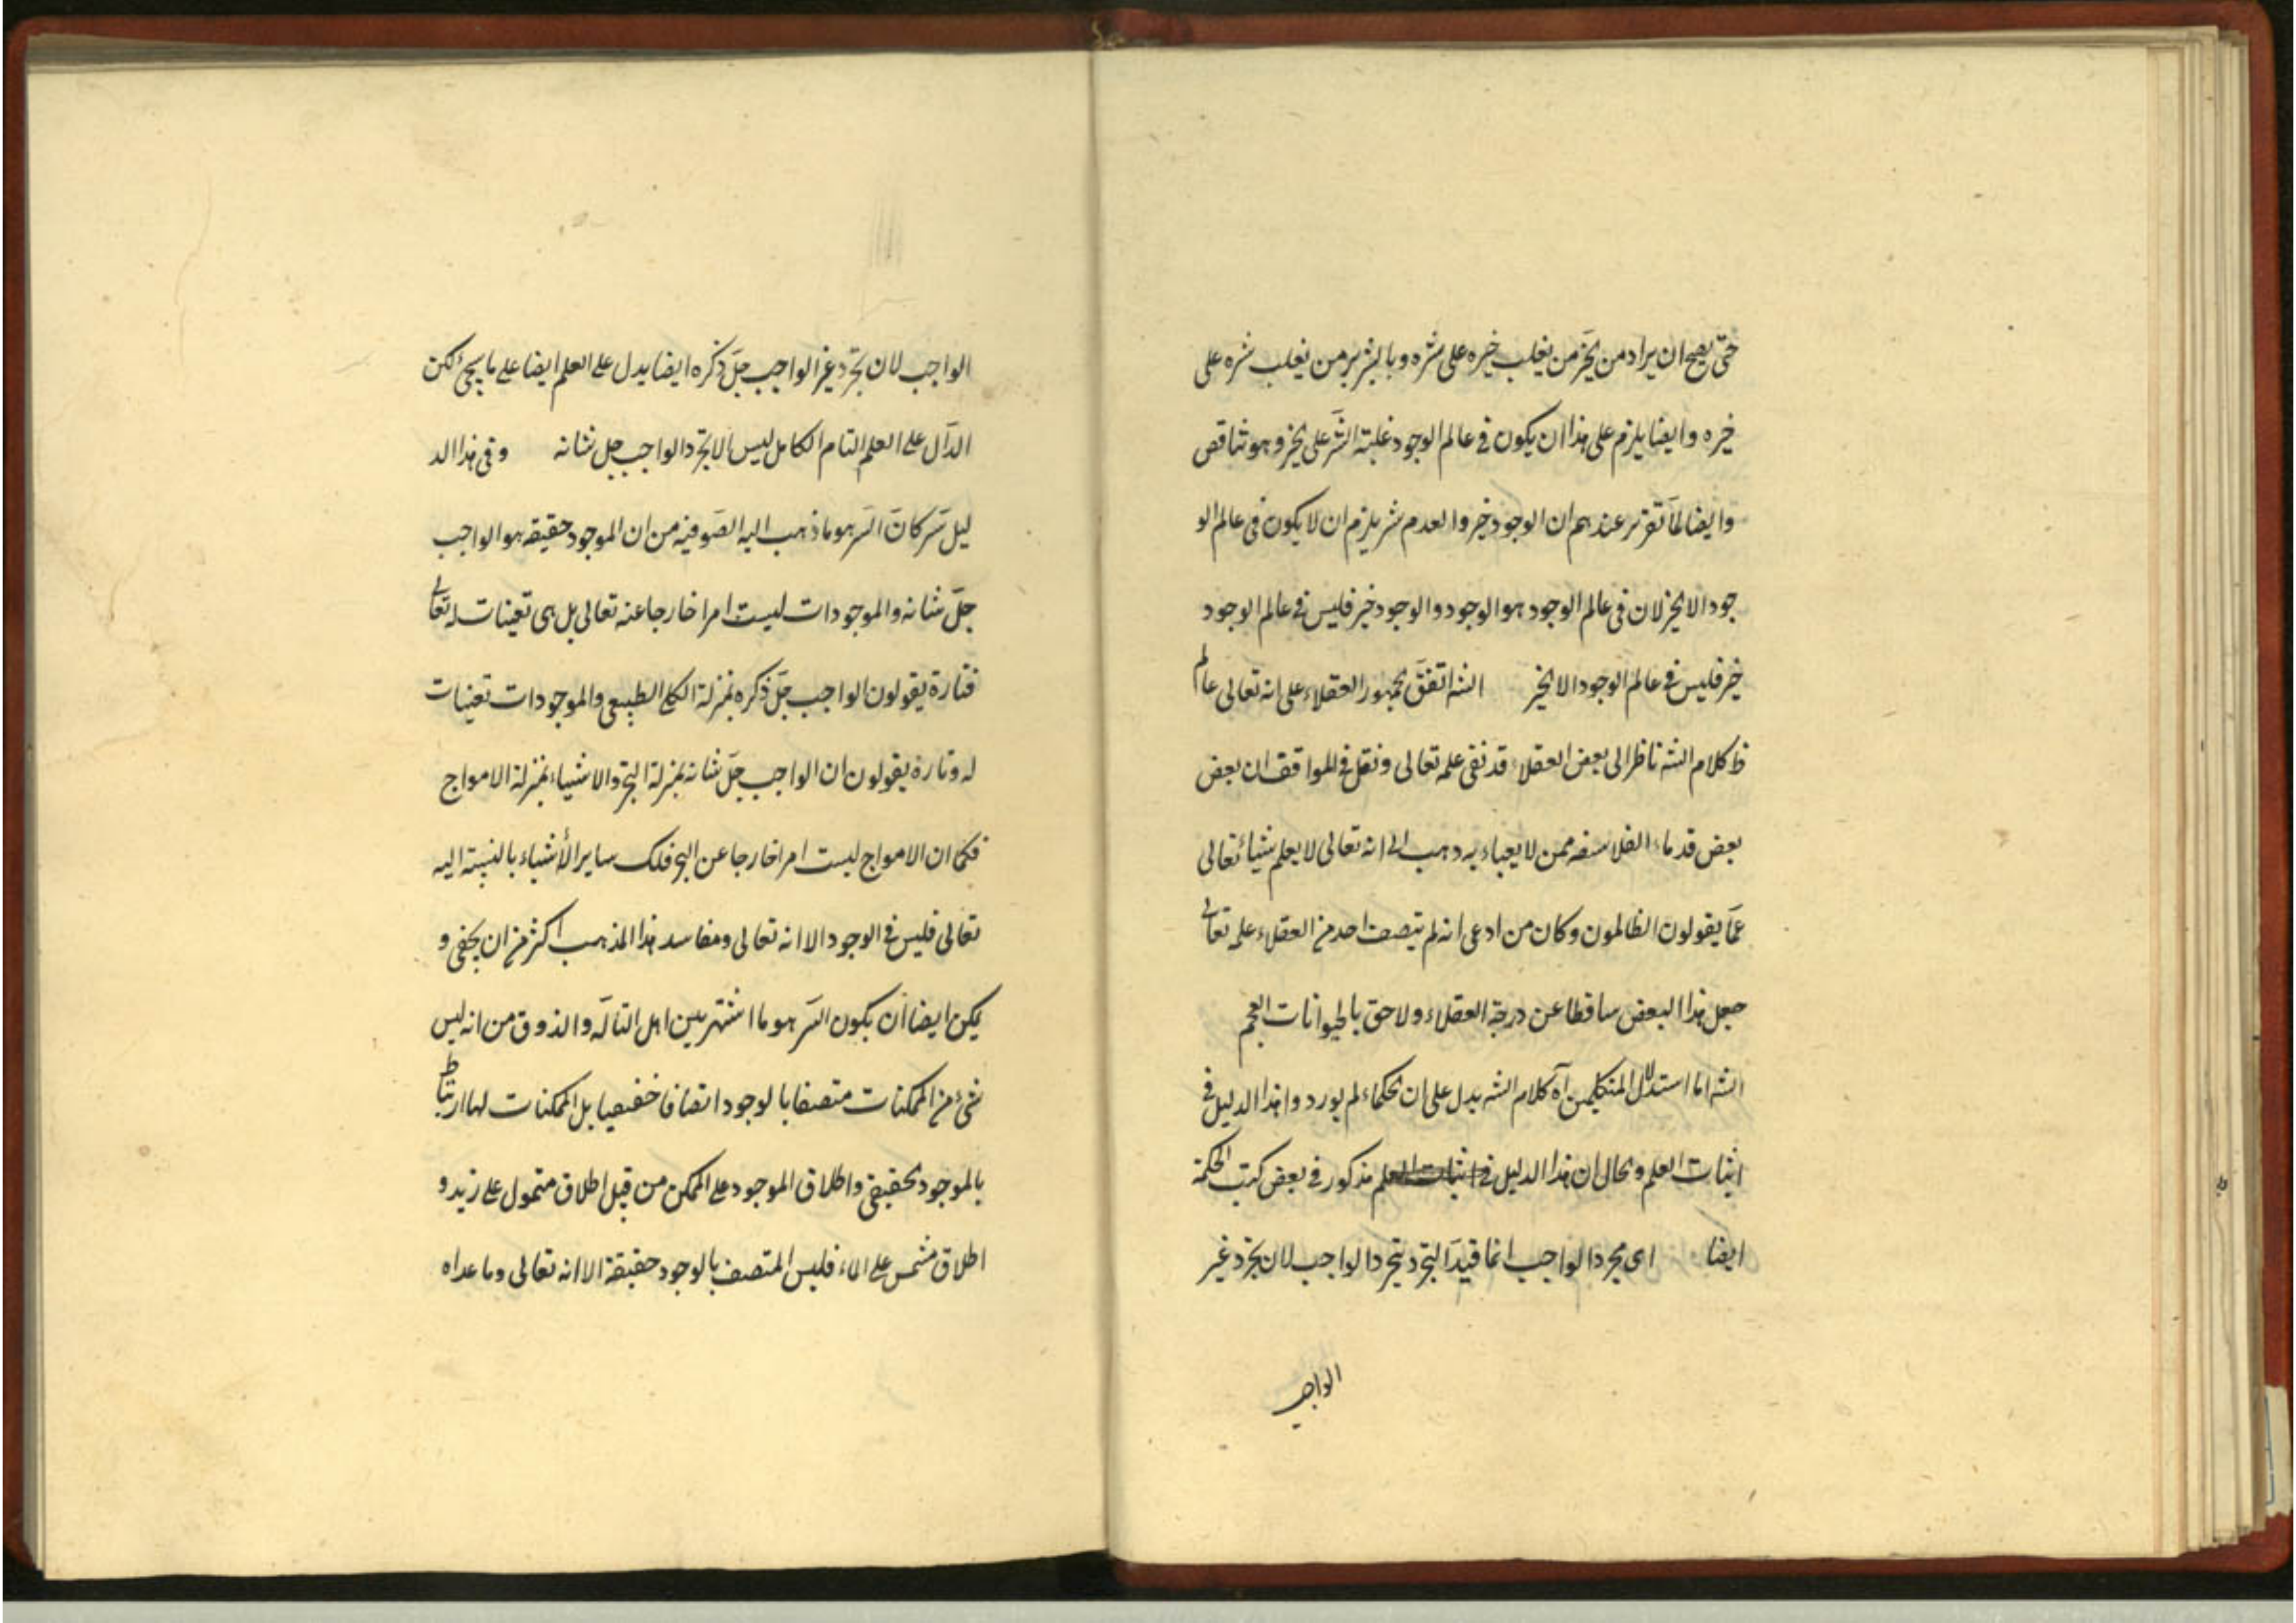 حتّى يصح ان يراد من الخيّر من يغلب خيره على شره وبالشرير من يغلب شره على
خيره وايضا يلزم على هذا ان يكون في عالم الوجود غلبة الشّر على الخير وهو تناقض
وايضا لمّا تقرّر عندهم ان الوجود خير والعدم شر يلزم ان لا يكون في عالم الو
جود الا الخير لان في عالم الوجود هو الوجود والوجود خير فليس في عالم الوجود
خير فليس في عالم الوجود الا الخير الشه اتفق جمهور العقلاء على انه تعالى عالم
ظ كلام الشه ناظر الى بعض العقلاء قد نفى علمه تعالى ونقل في المواقف ان بعض
بعض قدماء الفلاسفه ممن لا يعباء به ذهب الى انه تعالى لا يعلم شيئا تعالى
عمّا يقولون الظالمون وكان من ادعى انه لم يتصف احد من العقلاء علمه تعالى
جعل هذا البعض ساقطا عن درجة العقلاء ولاحق بالحيوانات العجم
الشه اما استدلال المتكلمين آه كلام الشه يدل على ان الحكماء لم يوردوا هذا الدليل في
اثبات العلم والحال ان هذا الدليل في اثبات العلم مذكور في بعض كتب الحكمة
ايضا اى مجرد الواجب انما قيد التجرد بتجرد الواجب لان تجرد غير
الواجب
الواجب لان تجرّد غير الواجب جلّ ذكره ايضا يدل على العلم ايضا على ما سيجئ لكن
الدآل على العلم التام الكامل ليس الا تجرد الواجب جل شانه وفى هذا الد
ليل سّر كانّ السّر هو ما ذهب اليه الصّوفيه من ان الموجود حقيقه هو الواجب
جلّ شانه والموجودات ليست امرا خارجا عنه تعالى بل هى تعينات له تعالى
فتارة يقولون الواجب جلّ ذكره بمنزلة الكلى الطبيعى والموجودات تعينات
له وتارة يقولون ان الواجب جلّ شانه بمنزلة البحر والاشياء بمنزلة الامواج
فكما ان الامواج ليست امرا خارجا عن البحر فلك ساير الأشياء بالنسبة اليه
تعالى فليس في الوجود الا انه تعالى ومفاسد هذا المذهب اكثر من ان يخفى و
يكن ايضا ان يكون السّر هو ما اشتهر بين اهل التألّه والذوق من انه ليس
شئ من الممكنات متصفا بالوجود اتصافا حقيقيا بل الممكنات لها ارتباط
بالموجود الحقيقى واطلاق الموجود على الممكن من قبل اطلاق متمول على زيد و
اطلاق مشمس على الماء فليس المتصف بالوجود حقيقة الا انه تعالى وما عداه